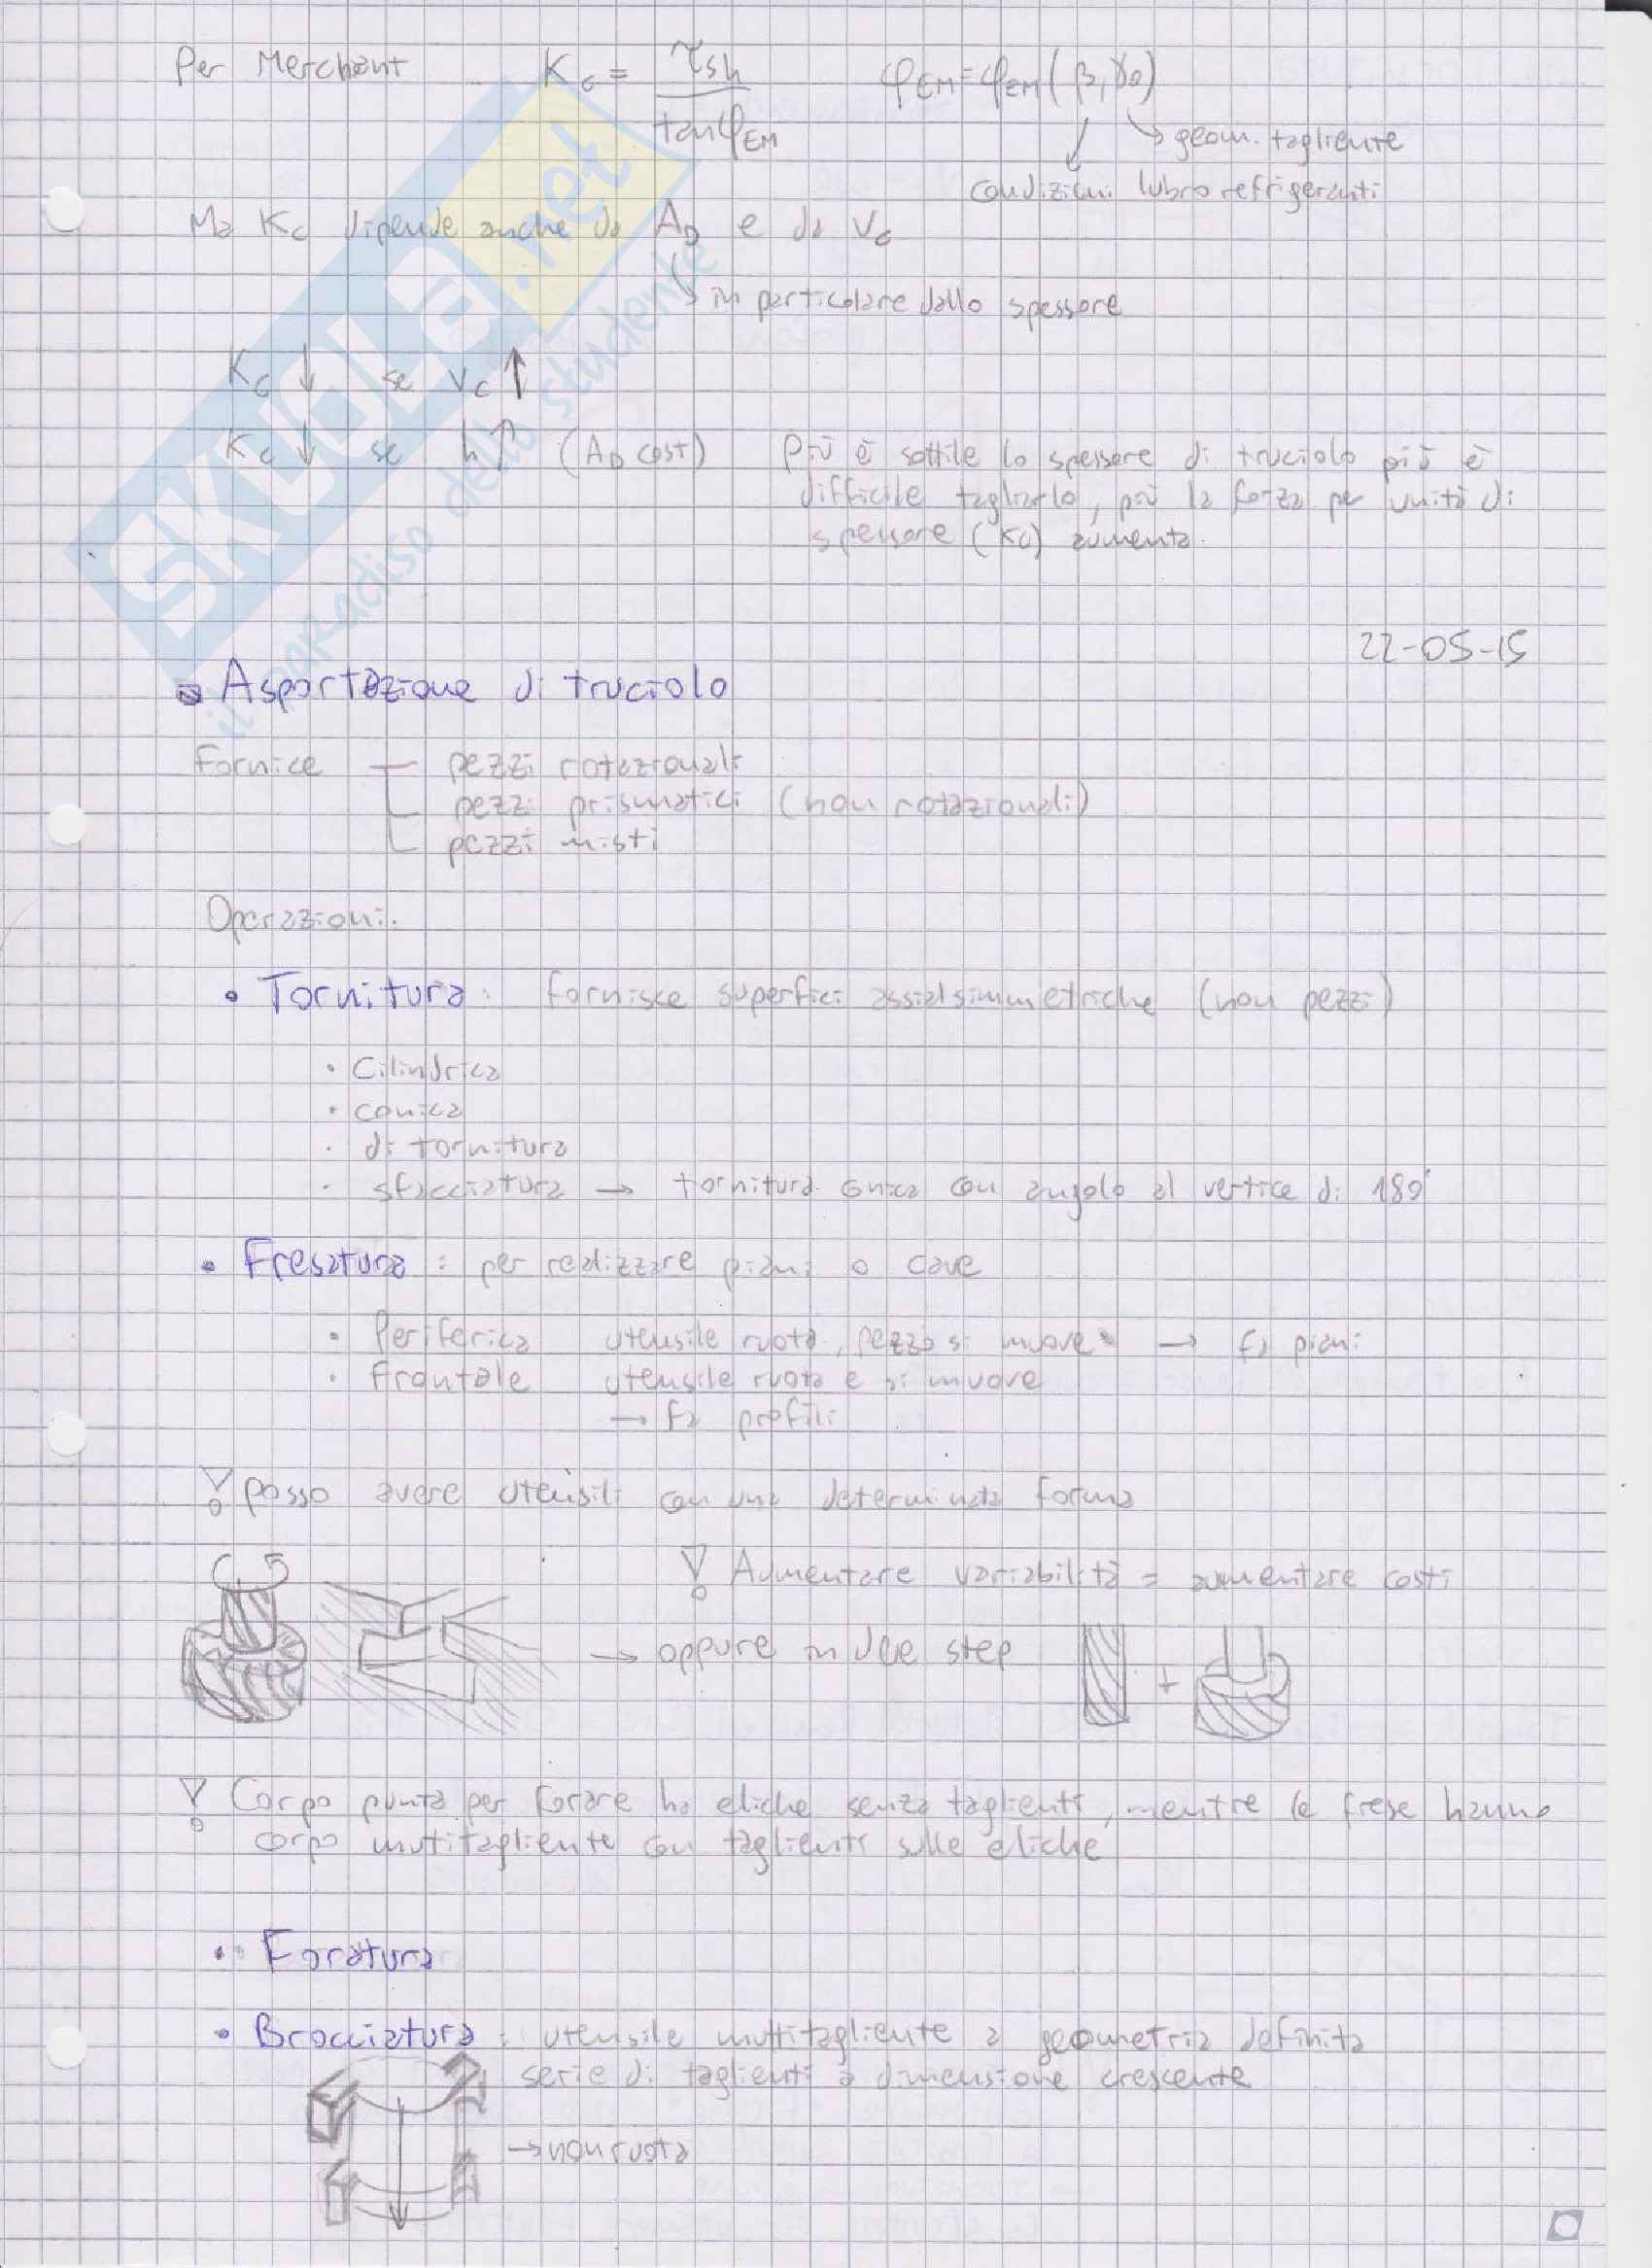 Per Merchant Kc = τsh / tanφEM φEM = φEM(β, γo)
→ geom. tagliente
condizioni lubrorefrigeranti
Ma Kc dipende anche da AD e da vc
→ in particolare dallo spessore
Kc ↓ se vc ↑
Kc ↓ se h ↑ (AD cost) Più è sottile lo spessore di truciolo più è
difficile tagliarlo, più la forza per unità di
spessore (Kc) aumenta.
22-05-15
Asportazione di truciolo
Fornice pezzi rotazionali
pezzi prismatici (non rotazionali)
pezzi misti
Operazioni:
• Tornitura: fornisce superfici assialsimmetriche (non pezzi)
• Cilindrica
• conica
• di tornitura
• sfacciatura → tornitura conica con angolo al vertice di 180°
• Fresatura: per realizzare piani o cave
• Periferica utensile ruota, pezzo si muove → fa piani
• frontale utensile ruota e si muove
→ fa profili
Posso avere utensili con una determinata forma
Aumentare variabilità = aumentare costi
→ oppure in due step +
Corpo punta per forare ha eliche senza taglienti, mentre le frese hanno
corpo mutitagliente con taglienti sulle eliche
• Foratura
• Brocciatura: utensile multitagliente a geometria definita
serie di taglienti a dimensione crescente
→ non ruota
SKUOLA.net
il paradiso dello studente